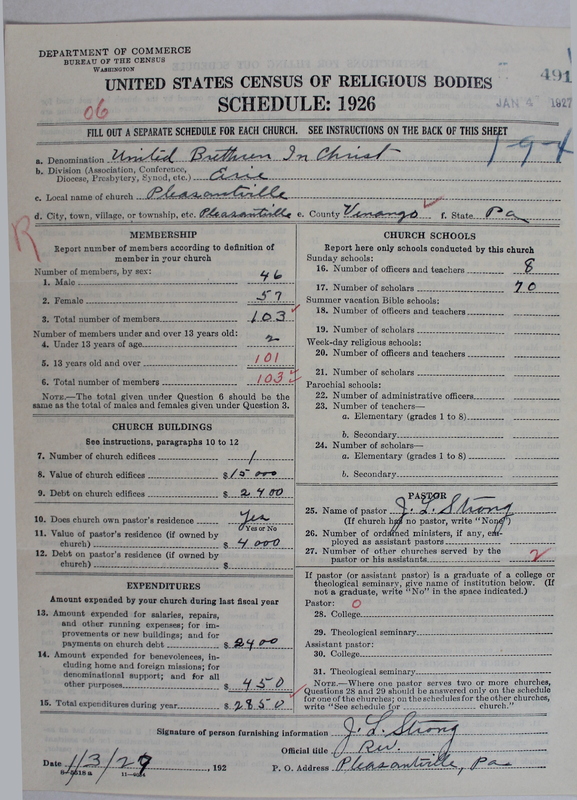 DEPARTMENT OF COMMERCE
BUREAU OF THE CENSUS
WASHINGTON
491
UNITED STATES CENSUS OF RELIGIOUS BODIES
SCHEDULE: 1926
06
JAN 4 1927
FILL OUT A SEPARATE SCHEDULE FOR EACH CHURCH. SEE INSTRUCTIONS ON THE BACK OF THIS SHEET
1-9-4
a. Denomination United Brethren In Christ
b. Division (Association, Conference, Diocese, Presbytery, Synod, etc.) Erie
c. Local name of church Pleasantville
d. City, town, village, or township, etc. Pleasantville e. County Venango f. State Pa
R
MEMBERSHIP
Report number of members according to definition of
member in your church
Number of members, by sex:
1. Male 46
2. Female 57
3. Total number of members 103
Number of members under and over 13 years old:
4. Under 13 years of age 2
5. 13 years old and over 101
6. Total number of members 103
NOTE.—The total given under Question 6 should be the
same as the total of males and females given under Question 3.
CHURCH BUILDINGS
See instructions, paragraphs 10 to 12
7. Number of church edifices 1
8. Value of church edifices $15000
9. Debt on church edifices $2400
10. Does church own pastor's residence Yes
Yes or No
11. Value of pastor's residence (if owned by
church) $4000
12. Debt on pastor's residence (if owned by
church) $
EXPENDITURES
Amount expended by your church during last fiscal year
13. Amount expended for salaries, repairs,
and other running expenses; for im-
provements or new buildings; and for
payments on church debt $2400
14. Amount expended for benevolences, in-
cluding home and foreign missions; for
denominational support; and for all
other purposes $450
15. Total expenditures during year $2850
CHURCH SCHOOLS
Report here only schools conducted by this church
Sunday schools:
16. Number of officers and teachers 8
17. Number of scholars 70
Summer vacation Bible schools:
18. Number of officers and teachers
19. Number of scholars
Week-day religious schools:
20. Number of officers and teachers
21. Number of scholars
Parochial schools:
22. Number of administrative officers
23. Number of teachers—
a. Elementary (grades 1 to 8)
b. Secondary
24. Number of scholars—
a. Elementary (grades 1 to 8)
b. Secondary
PASTOR
25. Name of pastor J. L. Strong
(If church has no pastor, write "None")
26. Number of ordained ministers, if any, em-
ployed as assistant pastors
27. Number of other churches served by the
pastor or his assistants 2
If pastor (or assistant pastor) is a graduate of a college or
theological seminary, give name of institution below. (If
not a graduate, write "No" in the space indicated.)
Pastor: 0
28. College
29. Theological seminary
Assistant pastor:
30. College
31. Theological seminary
NOTE.—Where one pastor serves two or more churches,
Questions 28 and 29 should be answered only on the schedule
for one of the churches; on the schedules for the other churches,
write "See schedule for church."
Signature of person furnishing information J. L. Strong
Official title Rev.
Date 1/3/27, 192 P. O. Address Pleasantville, Pa